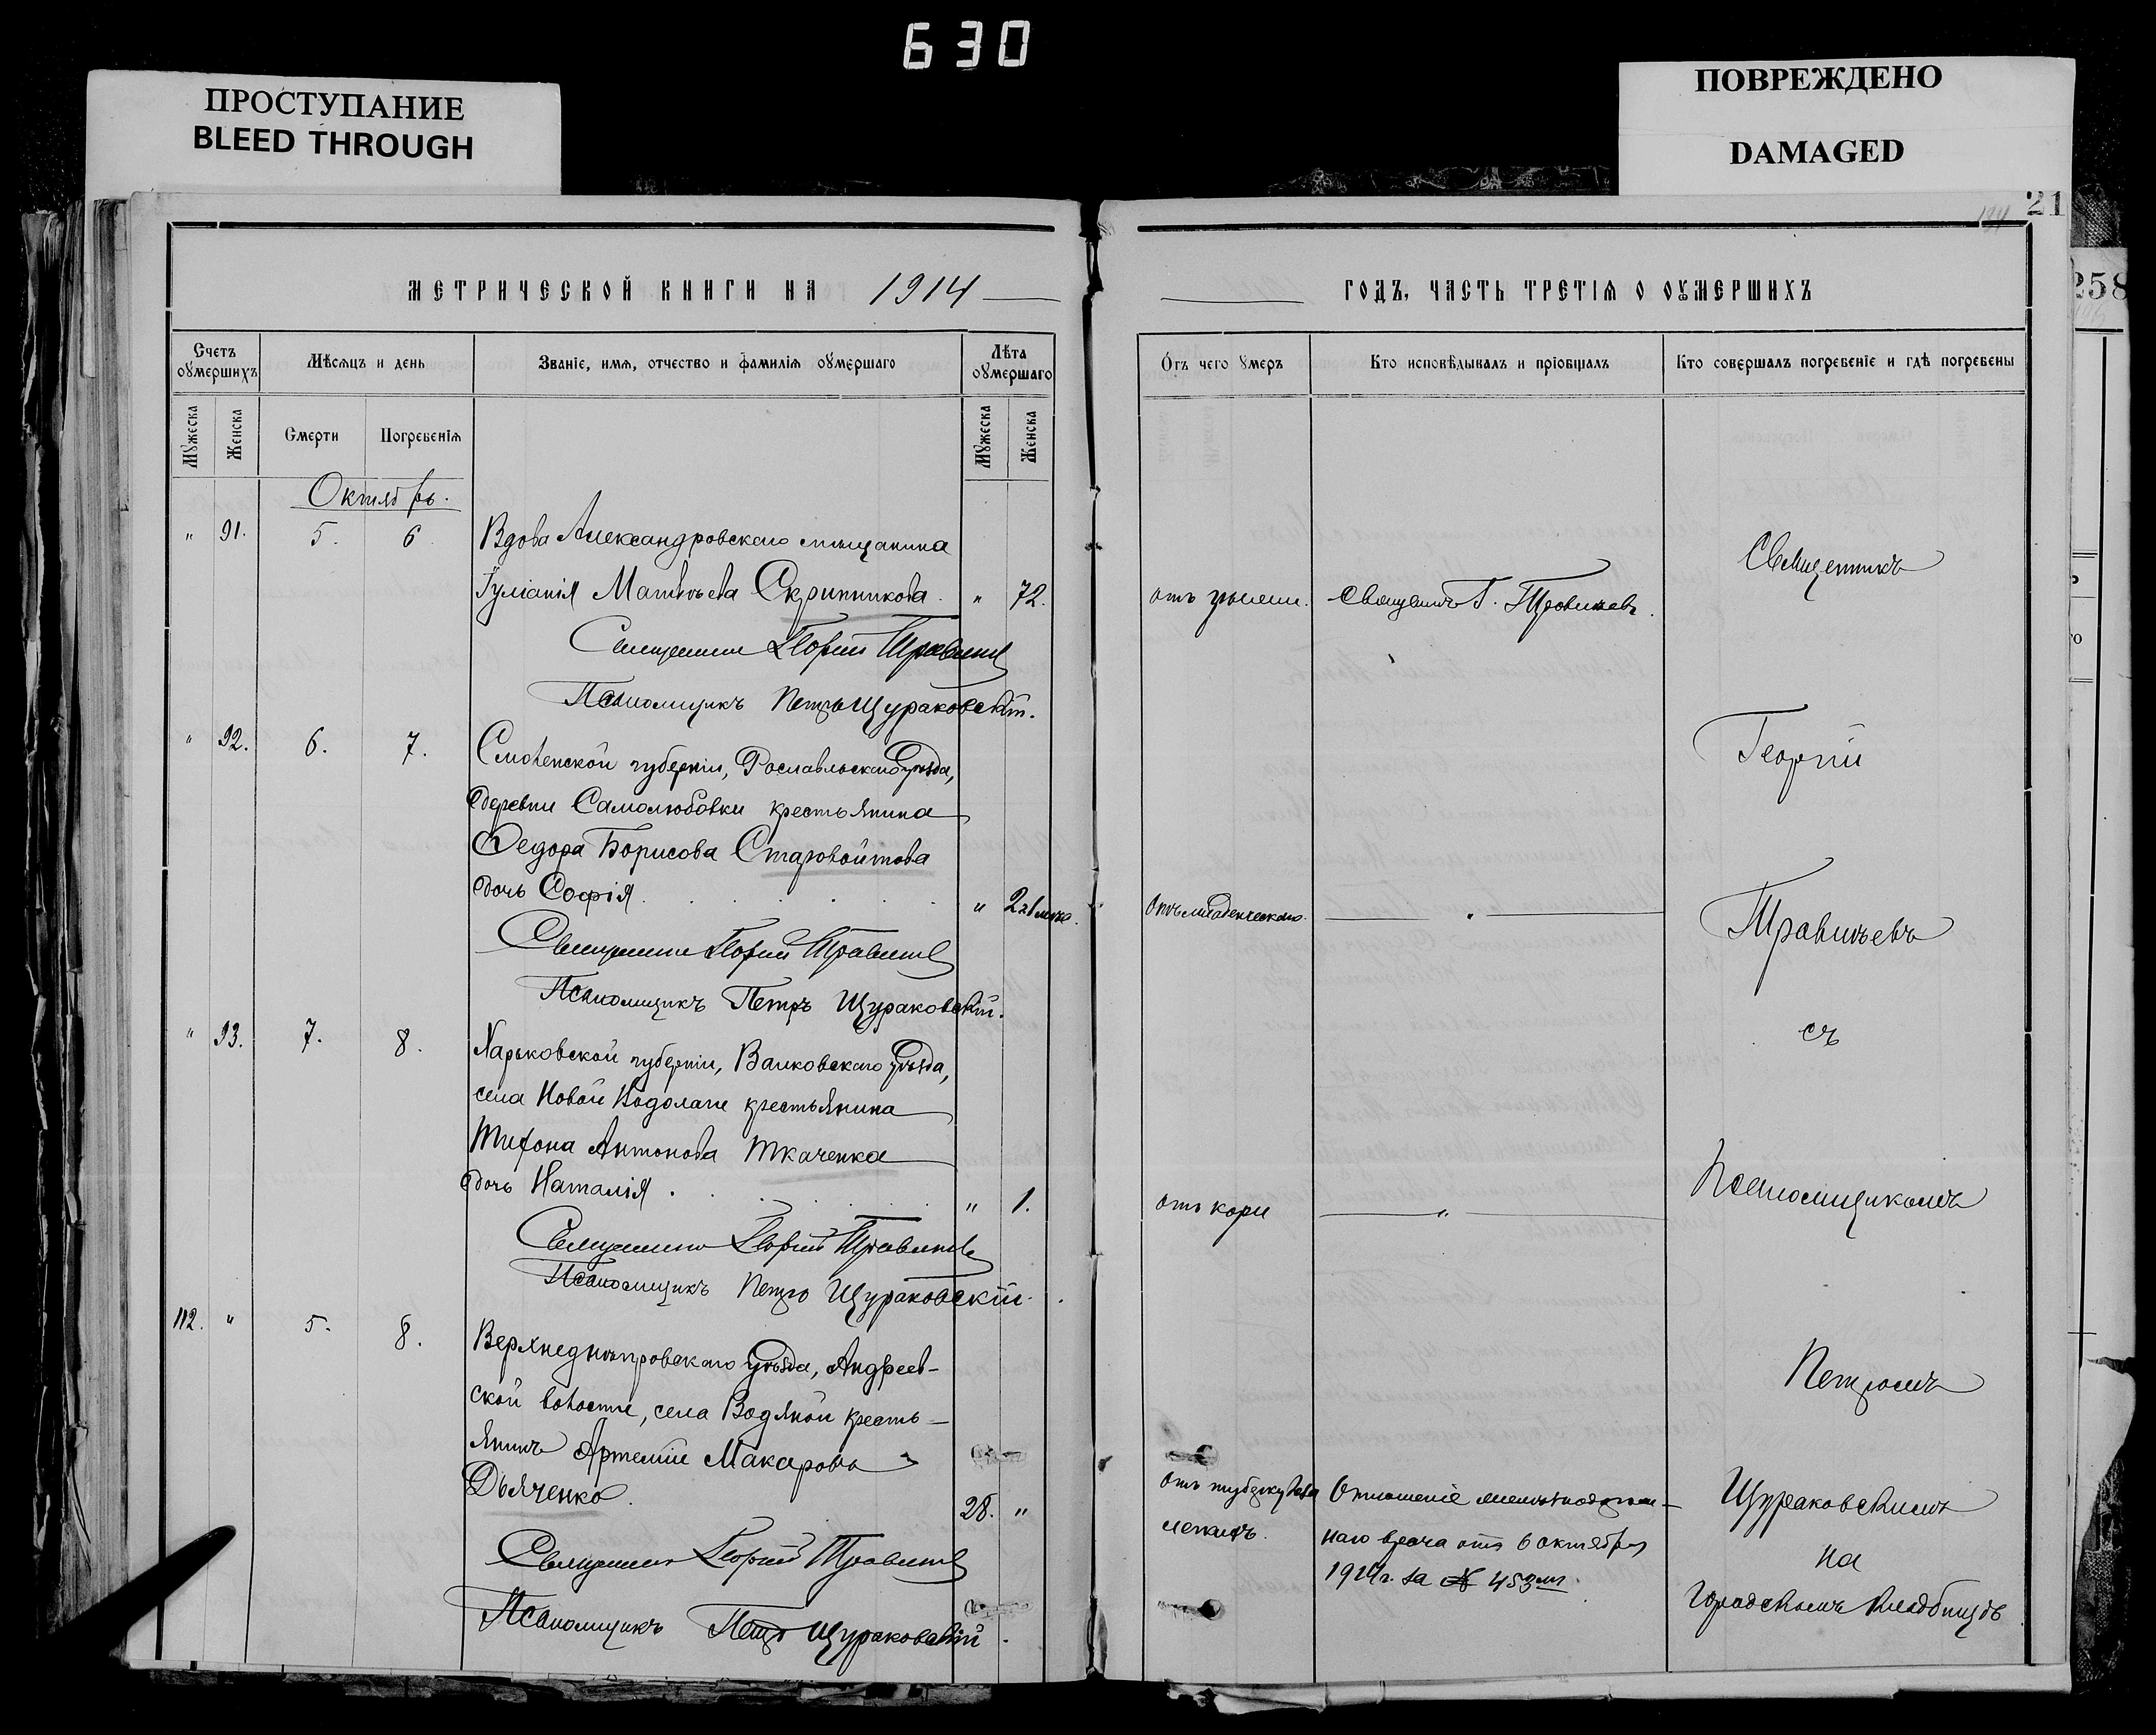 630
ПРОСТУПАНИЕ
BLEED THROUGH
ПОВРЕЖДЕНО
DAMAGED
21
258
МЕТРИЧЕСКОЙ КНИГИ НА 1914
ГОДЪ, ЧАСТЬ ТРЕТІѦ О ОУМЕРШИХЪ
Счетъ оумершихъ
Мѣсѧцъ и день
Званіе, имѧ, отчество и фамиліѧ оумершаго
Лѣта оумершаго
Отъ чего умеръ
Кто исповѣдывалъ и пріобщалъ
Кто совершалъ погребеніе и гдѣ погребены
Мужеска
Женска
Смерти
Погребеніѧ
Мужеска
Женска
Октябрь.
" 91. 5. 6 Вдова Александровскаго мѣщанина
Іуліанія Матвѣева Скрипникова. " 72.
Священникъ Георгій Травинъевъ
Псаломщикъ Петръ Щураковскій.
" 92. 6. 7. Смоленской губерніи, Рославльскаго уѣзда,
деревни Самолюбовки крестьянина
Федора Борисова Старовойтова
дочь Софія. "
Священникъ Георгій Травинъевъ
Псаломщикъ Петръ Щураковскій.
" 93. 7. 8. Харьковской губерніи, Валковскаго уѣзда,
села Новой Водолаги крестьянина
Тихона Антонова Ткаченка
дочь Наталія. " 1.
Священникъ Георгій Травинъевъ
Псаломщикъ Петръ Щураковскій.
112. " 5. 8. Верхнеднѣпровскаго уѣзда, Андреев-
ской волости, села Водяной кресть-
янинъ Артемій Макаровъ
Дьяченко. 28. "
Священникъ Георгій Травинъевъ
Псаломщикъ Петръ Щураковскій.
отъ священникъ Г.
Отъ младенческаго. "
отъ кори "
отъ туберкулеза
легкихъ.
Отношеніе
наго врача отъ 6 октября
1914 г. за № 453мъ.
Священникъ
Георгій
Травинъевъ
съ
Псаломщикомъ
Петромъ
Щураковскимъ
на
Городскомъ кладбищѣ